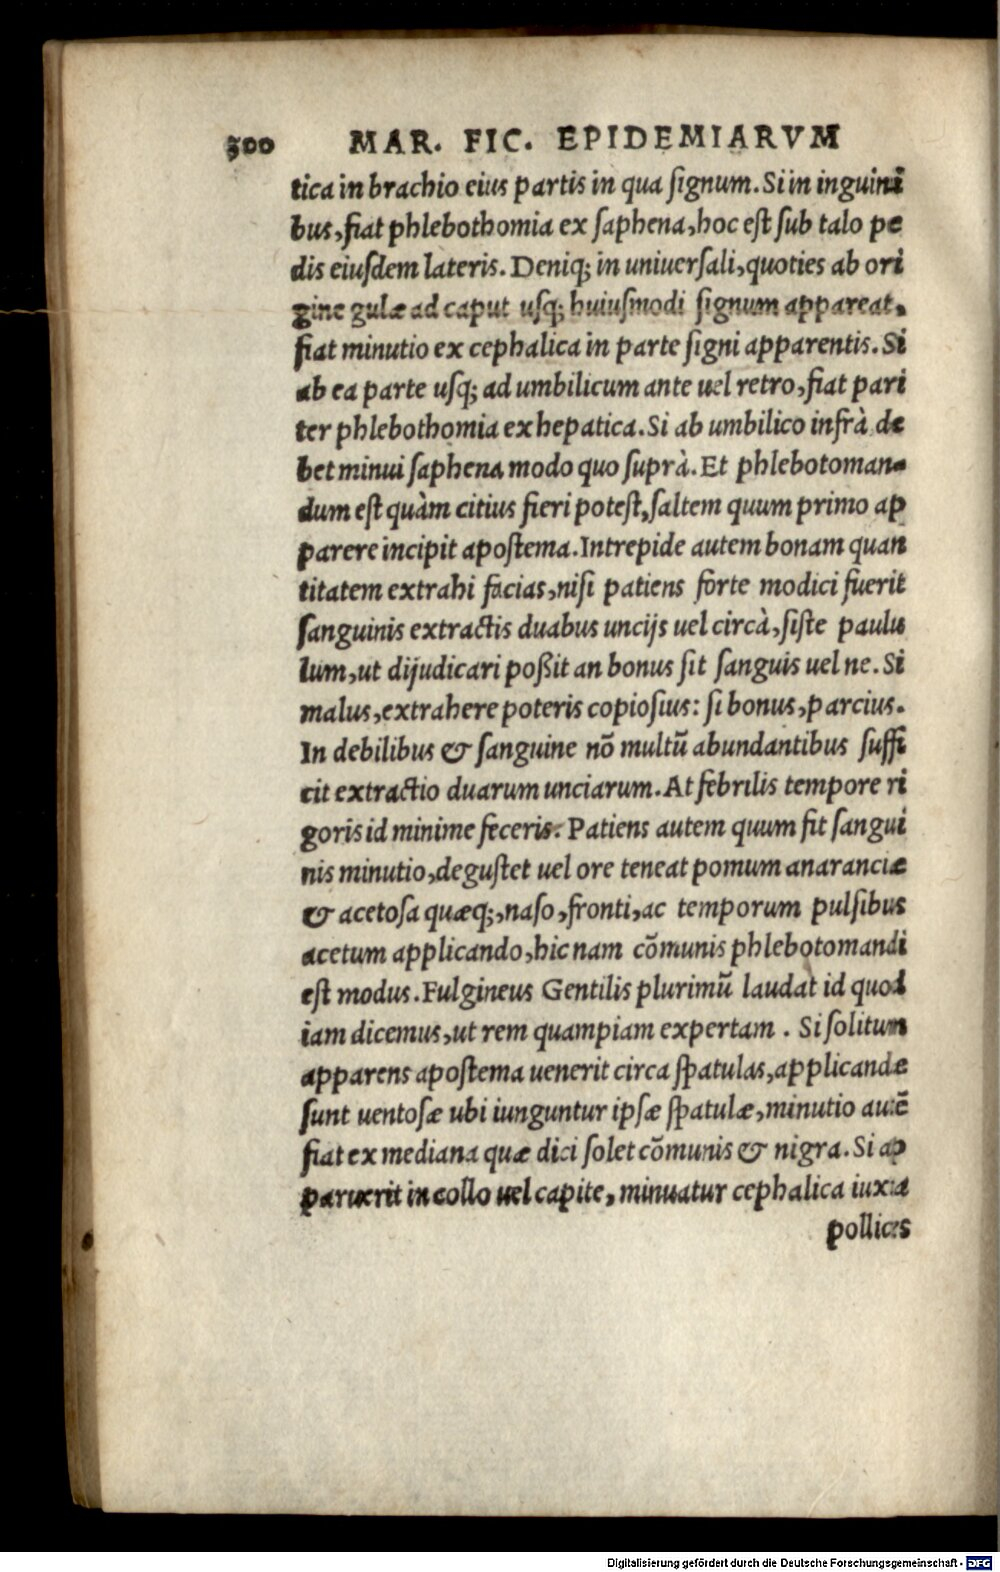 300 MAR. FIC. EPIDEMIARVM
tica in brachio eius partis in qua ſignum. Si in inguini
bus, fiat phlebothomia ex ſaphena, hoc eſt ſub talo pe
dis eiuſdem lateris. Deniq; in uniuerſali, quoties ab ori
gine gulæ ad caput uſq; huiuſmodi ſignum appareat,
fiat minutio ex cephalica in parte ſigni apparentis. Si
ab ea parte uſq; ad umbilicum ante uel retro, fiat pari
ter phlebothomia ex hepatica. Si ab umbilico infrà de
bet minui ſaphena modo quo ſuprà. Et phlebotoman-
dum eſt quàm citius fieri poteſt, ſaltem quum primo ap
parere incipit apoſtema. Intrepide autem bonam quan
titatem extrahi facias, niſi patiens forte modici fuerit
ſanguinis extractis duabus uncijs uel circà, ſiſte paulu
lum, ut dijudicari poßit an bonus ſit ſanguis uel ne. Si
malus, extrahere poteris copioſius: ſi bonus, parcius.
In debilibus & ſanguine nō multū abundantibus ſuffi
cit extractio duarum unciarum. At febrilis tempore ri
goris id minime feceris. Patiens autem quum fit ſangui
nis minutio, deguſtet uel ore teneat pomum anaranciæ
& acetoſa quæq;, naſo, fronti, ac temporum pulſibus
acetum applicando, hic nam cōmunis phlebotomandi
eſt modus. Fulgineus Gentilis plurimū laudat id quod
iam dicemus, ut rem quampiam expertam. Si ſolitum
apparens apoſtema uenerit circa ſpatulas, applicandæ
ſunt uentoſæ ubi iunguntur ipſæ ſpatulæ, minutio autē
fiat ex mediana quæ dici ſolet cōmunis & nigra. Si ap
paruerit in collo uel capite, minuatur cephalica iuxta
pollices
Digitalisierung gefördert durch die Deutsche Forschungsgemeinschaft - DFG